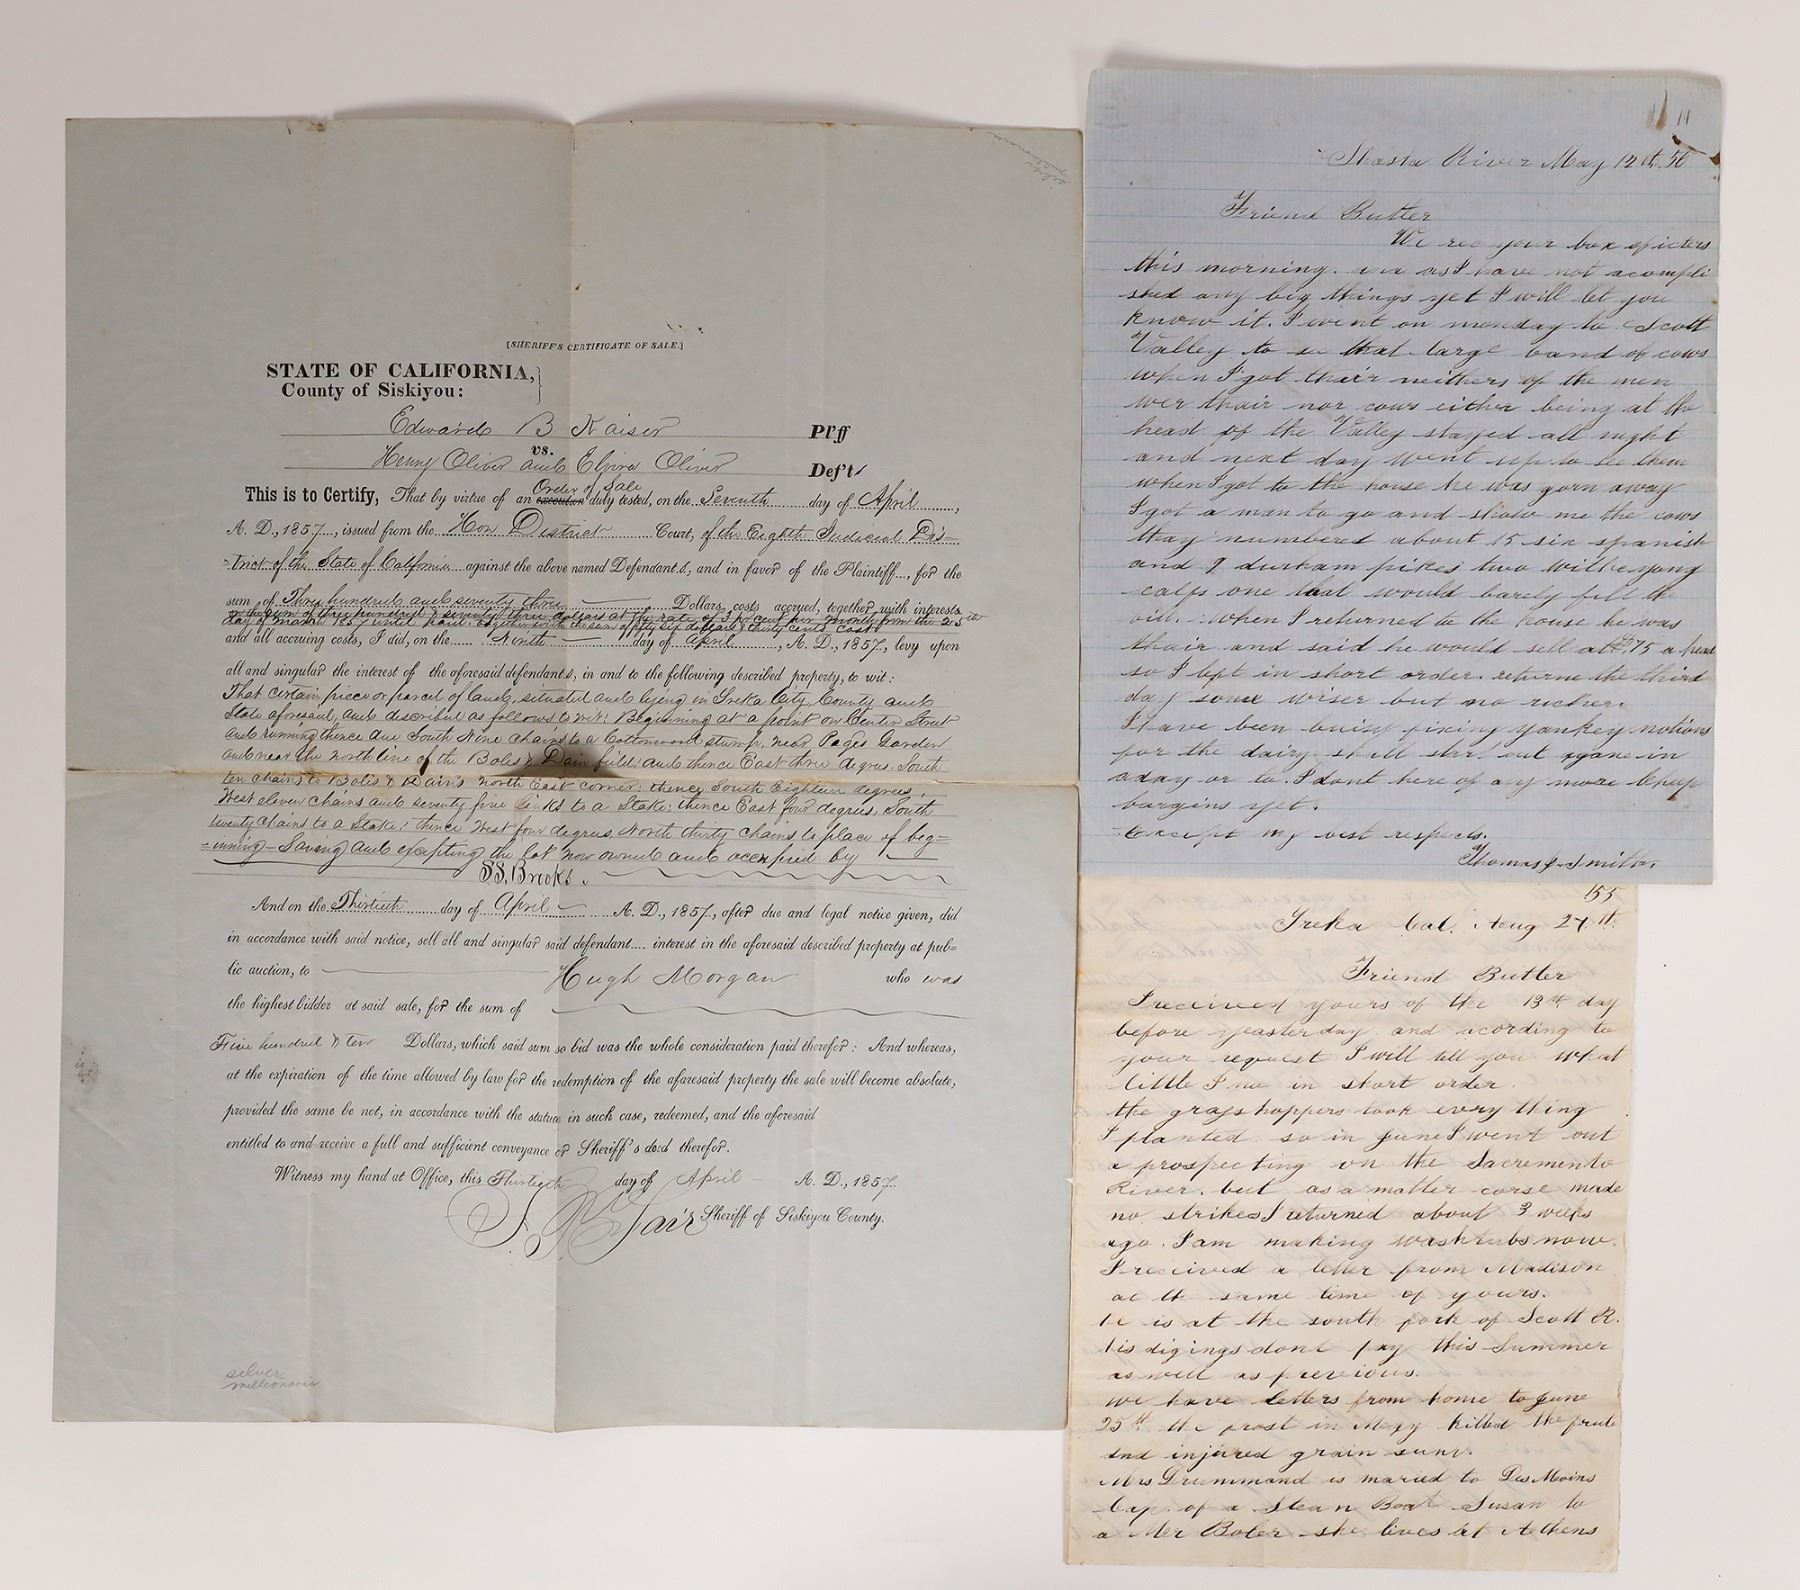 [SHERIFF'S CERTIFICATE OF SALE.]
STATE OF CALIFORNIA,
County of Siskiyou:
Edward B Kaiser Pl'ff
vs.
Henry Oliver and Elvira Oliver Def't
Order of Sale
This is to Certify, That by virtue of an execution duly tested, on the Seventh day of April,
A. D., 1857, issued from the Hon District Court, of the Eighth Judicial Dis-
-trict of the State of California against the above named Defendants, and in favor of the Plaintiff, for the
sum of Three hundred and seventy three Dollars, costs accrued, together with interests
on the sum of three hundred & seventy three dollars at the rate of 3 per cent per month from the 25th
day of March 1857 until paid, and the sum of fifty six dollars & thirty cents cost
and all accruing costs, I did, on the Nineth day of April, A. D., 1857, levy upon
all and singular the interest of the aforesaid defendants, in and to the following described property, to wit:
That certain piece or parcel of land, situated and lying in Yreka City, County and
State aforesaid, and described as follows to wit: Beginning at a point on Center Street
and running thence due South Nine chains to a Cottonwood stump, near Pages Garden
and near the north line of the Boles & Dain field; and thence East three degres, South
ten chains to Boles & Dain's North East corner; thence South Eighteen degrees,
West eleven chains and seventy five links to a Stake; thence East four degrees, South
twenty chains to a Stake; thence West four degrees, North thirty chains to place of beg-
-inning - Saving and excepting the lot now owned and occupied by
SS. Brooks.
And on the Thirtieth day of April A. D., 1857, after due and legal notice given, did
in accordance with said notice, sell all and singular said defendant interest in the aforesaid described property at pub-
lic auction, to Hugh Morgan who was
the highest bidder at said sale, for the sum of
Five hundred & ten Dollars, which said sum so bid was the whole consideration paid therefor: And whereas,
at the expiration of the time allowed by law for the redemption of the aforesaid property the sale will become absolute,
provided the same be not, in accordance with the statute in such case, redeemed, and the aforesaid
entitled to and receive a full and sufficient conveyance or Sheriff's deed therefor.
Witness my hand at Office, this Thirtieth day of April A. D., 1857.
Fair Sheriff of Siskiyou County.
silver
millionaire
11
Shasta River May 12th 56
Friend Butler
We rec your box of
this morning. as I have not acompli
shed any big things yet I will let you
know it. I went on monday to Scott
Valley to se that large band of cows
when I got thair neithers of the men
wer thair nor cows either being at the
head of the Valley stayed all night
and next day went up to see them
when I got to the house he was gorn away
I got a man to go and show me the cows
thay numbered about 15 six spanish
and 9 durham pikes two with young
calfs one that would barely fill the
bill. when I returned to the house he was
thair and said he would sell at $75 a head
so I left in short order. returnd the third
day some wiser but no richer.
I have been buisy fixing yankey notions
for the dairy. shall start out agane in
a day or to. I dont here of any more cheap
bargins yet.
Except my best respects.
Thomas J. Smith.
55
Yreka Cal. Aug 27th
Friend Butler
I received yours of the 13th day
before yeasterday. and acording to
your request I will tell you what
little I no in short order.
the grasshoppers took every thing
I planted. so in June I went out
a prospecting on the Sacremento
River. but as a matter corse made
no strikes I returned about 3 weeks
ago. I am making washtubs now.
I received a letter from Madison
at the same time of yours.
he is at the south fork of Scott R.
his digings dont pay this Summer
as well as previous.
we have letters from home to June
25th the frost in May killed the frute
and injured grain sum.
Mrs Drummand is maried to Des Moins
Cap. of a Steam Boat Susan to
a Mr Boler she lives at Athens